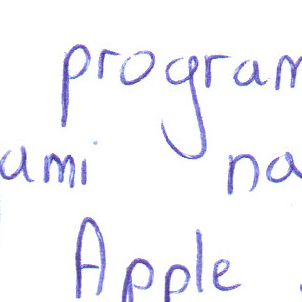 program
ami na
Apple